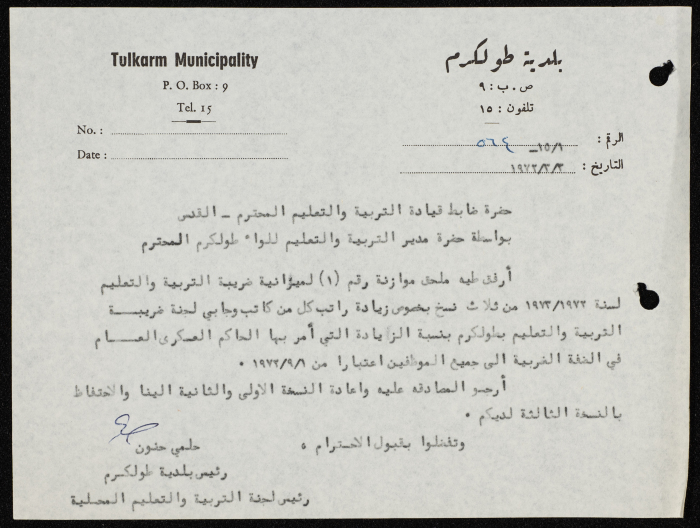 Tulkarm Municipality
P. O. Box : 9
Tel. 15
No. :
Date :
بلدية طولكرم
ص . ب : ٩
تلفون : ١٥
الرقم : ١٥/٩ــ ٥٦٤
التاريخ : ١٩٧٣/٣/٣
حضرة ضابط قيادة التربية والتعليم المحترم ــ القدس
بواسطة حضرة مدير التربية والتعليم للواء طولكرم المحترم
أرفق طيه ملحق موازنة رقم (١) لميزانية ضريبة التربية والتعليم
لسنة ١٩٧٣/١٩٧٢ من ثلاث نسخ بخصوص زيادة راتب كل من كاتب وجابي لجنة ضريبـــة
التربية والتعليم بطولكرم بنسبة الزيادة التي أمر بها الحاكم العسكرى العـــام
في الضفة الغربية الى جميع الموظفين اعتبارا من ١٩٧٢/٩/١ .
أرجو المصادقه عليه واعادة النسخة الاولى والثانية الينا والاحتفاظ
بالنسخة الثالثة لديكم .
وتفضلوا بقبول الاحترام ،
حلمي حنون
رئيس بلدية طولكرم
رئيس لجنة التربية والتعليم المحلية